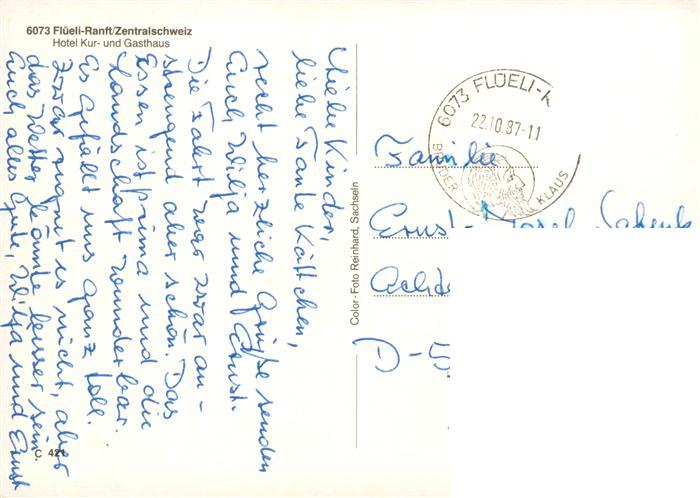 6073 Flüeli-Ranft/Zentralschweiz
Hotel Kur- und Gasthaus
Liebe Kinder,
liebe Tante Kättchen,
recht herzliche Grüße senden
Euch Wilja und Ernst.
Die Fahrt war zwar an-
strengend aber schön. Das
Essen ist prima und die
Landschaft wunderbar.
Es gefällt uns ganz toll.
Zwar regnet es nicht, aber
das Wetter könnte besser sein.
Euch alles Gute, Wilja und Ernst
C 421
Color-Foto Reinhard, Sachseln
6073 FLÜELI-
22.10.87-11
BRUDER KLAUS
Familie
Ernst-Josef
D-5